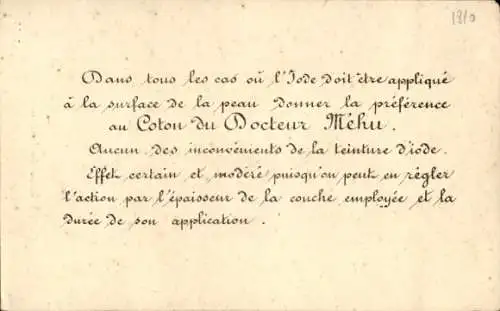 1310
Dans tous les cas où l'Iode doit être appliqué
à la surface de la peau donner la préférence
au Coton du Docteur Méhu.
Aucun des inconvénients de la teinture d'iode.
Effet certain et modéré puisqu'on peut en régler
l'action par l'épaisseur de la couche employée et la
durée de son application.